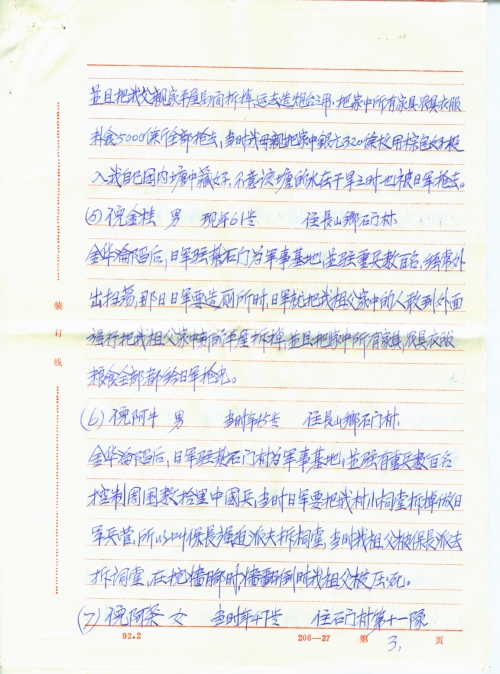 并且把我父親家平屋5间拆掉,运去造炮台之用,把家中所有家具、农具、衣服
料食5000余斤全部抢去,当时我母親把家中銀元320余枚用棕包好投
入我自己园内塘中藏好,不意該塘的水在干旱之时也被日军抢去。
(5)倪金桂 男 现年61岁 住長山鄉石门村
金华淪陷后,日军强装石门为軍事基地,並强重兵数百名,经常外
出扫荡,那日日军要造厕所时,日军就把我祖父家中的人敢到外面
强行把我祖父家中前间平屋拆掉,並且把家中所有家具、农具、衣服
粮食全部都给日军抢光。
(6)倪阿牛 男 当时年45岁 住長山鄉石门村
金华淪陷后,日军强装石门村为軍事基地,並强有重兵数百名
控制周围数拾里中國兵,当时日军要把我村小祠堂拆掉做日
军兵营,所以叫保長强迫派去拆祠堂,当时我祖父被保長派去
拆祠堂,在挖墙脚时,墙翻倒时我祖父被压死。
(7)倪阿菜 女 当时年47岁 住石门村第十一隊
装
订
线
92.2 206—27 第 3, 页